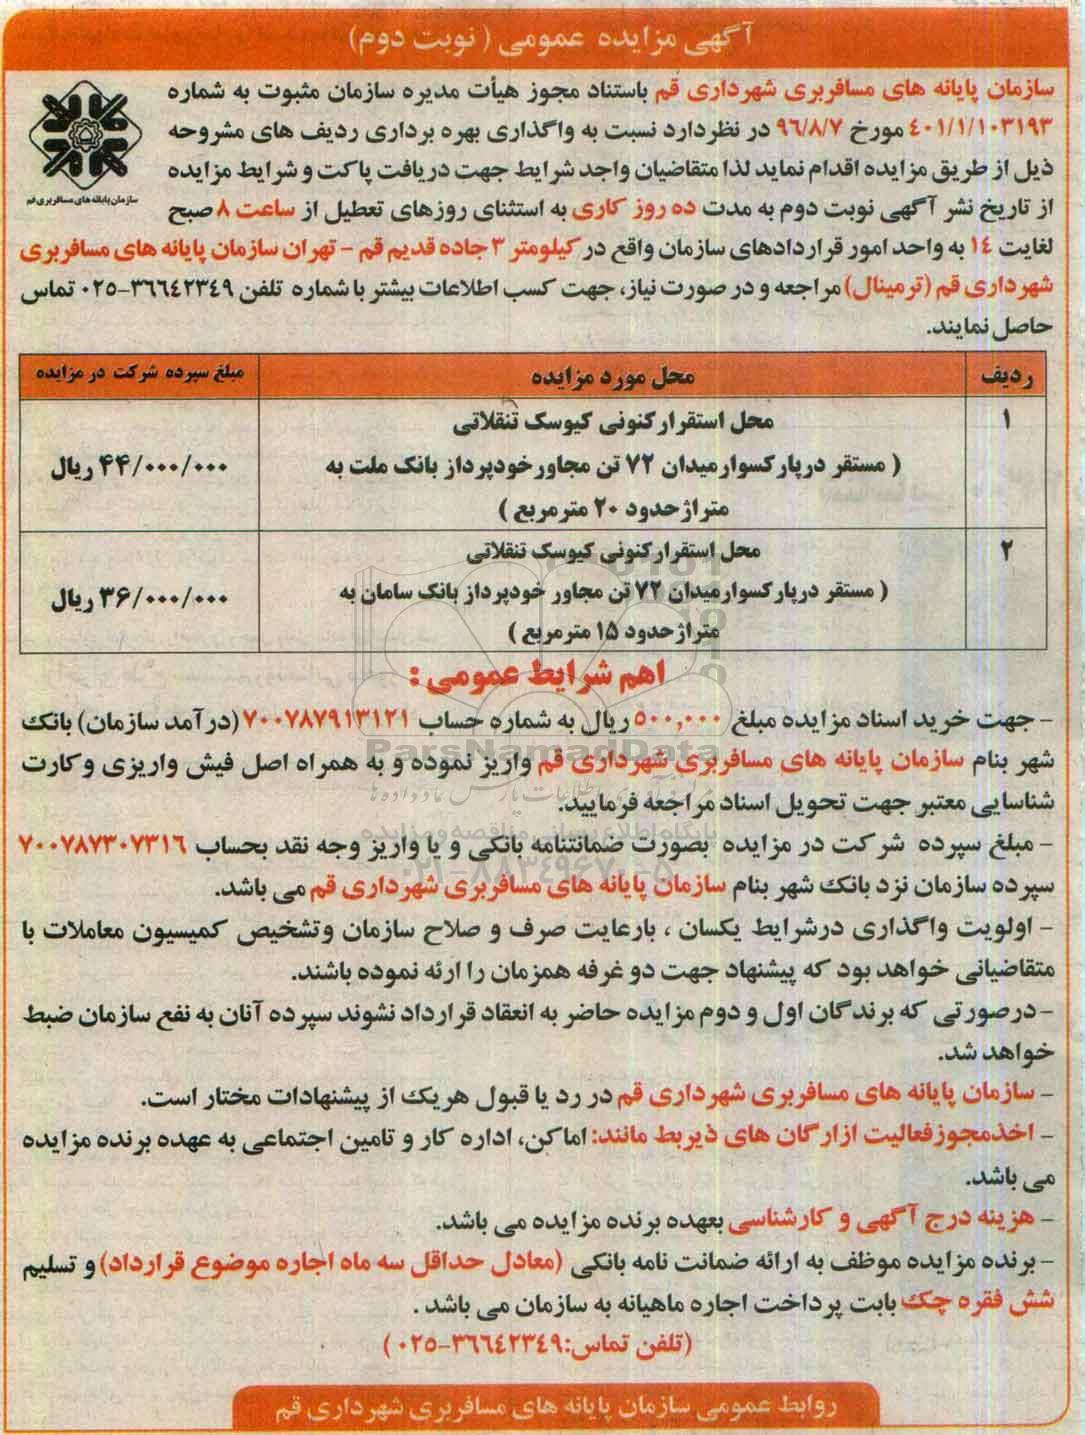 آگهی مزایده عمومی ( نوبت دوم)
سازمان پایانه های مسافربری شهرداری قم باستناد مجوز هیأت مدیره سازمان مثبوت به شماره
۴۰۱/۱/۱۰۳۱۹۳ مورخ ۹۶/۸/۷ در نظردارد نسبت به واگذاری بهره برداری ردیف های مشروحه
ذیل از طریق مزایده اقدام نماید لذا متقاضیان واجد شرایط جهت دریافت پاکت و شرایط مزایده
سازمان پایانه های مسافربری قم
از تاریخ نشر آگهی نوبت دوم به مدت ده روز کاری به استثنای روزهای تعطیل از ساعت ۸ صبح
لغایت ۱۴ به واحد امور قراردادهای سازمان واقع در کیلومتر ۳ جاده قدیم قم - تهران سازمان پایانه های مسافربری
شهرداری قم (ترمینال) مراجعه و در صورت نیاز، جهت کسب اطلاعات بیشتر با شماره تلفن ۳۶۶۴۲۳۴۹-۰۲۵ تماس
حاصل نمایند.
ردیف محل مورد مزایده مبلغ سپرده شرکت در مزایده
۱ محل استقرار کنونی کیوسک تنقلاتی
( مستقر درپارکسوارمیدان ۷۲ تن مجاورخودپرداز بانک ملت به ۴۴/۰۰۰/۰۰۰ ریال
متراژحدود ۲۰ مترمربع )
۲ محل استقرار کنونی کیوسک تنقلاتی
( مستقر درپارکسوارمیدان ۷۲ تن مجاور خودپرداز بانک سامان به ۳۶/۰۰۰/۰۰۰ ریال
متراژحدود ۱۵ مترمربع )
اهم شرایط عمومی :
- جهت خرید اسناد مزایده مبلغ ۵۰۰,۰۰۰ ریال به شماره حساب ۷۰۰۷۸۷۹۱۳۱۲۱ (درآمد سازمان) بانک
ParsNamadData
شهر بنام سازمان پایانه های مسافربری شهرداری قم واریز نموده و به همراه اصل فیش واریزی و کارت
شناسایی معتبر جهت تحویل اسناد مراجعه فرمایید.
پایگاه اطلاع رسانی مناقصه و مزایده
- مبلغ سپرده شرکت در مزایده بصورت ضمانتنامه بانکی و یا واریز وجه نقد بحساب ۷۰۰۷۸۷۳۰۷۳۱۶
سپرده سازمان نزد بانک شهر بنام سازمان پایانه های مسافربری شهرداری قم می باشد.
- اولویت واگذاری درشرایط یکسان ، بارعایت صرف و صلاح سازمان وتشخیص کمیسیون معاملات با
متقاضیانی خواهد بود که پیشنهاد جهت دو غرفه همزمان را ارئه نموده باشند.
- درصورتی که برندگان اول و دوم مزایده حاضر به انعقاد قرارداد نشوند سپرده آنان به نفع سازمان ضبط
خواهد شد.
- سازمان پایانه های مسافربری شهرداری قم در رد یا قبول هریک از پیشنهادات مختار است.
- اخذمجوزفعالیت ازارگان های ذیربط مانند: اماکن، اداره کار و تامین اجتماعی به عهده برنده مزایده
می باشد.
- هزینه درج آگهی و کارشناسی بعهده برنده مزایده می باشد.
- برنده مزایده موظف به ارائه ضمانت نامه بانکی (معادل حداقل سه ماه اجاره موضوع قرارداد) و تسلیم
شش فقره چک بابت پرداخت اجاره ماهیانه به سازمان می باشد .
(تلفن تماس:۳۶۶۴۲۳۴۹-۰۲۵ )
روابط عمومی سازمان پایانه های مسافربری شهرداری قم